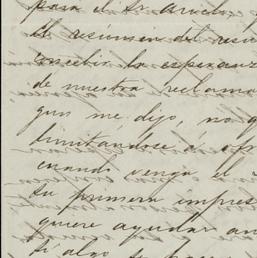 para el Sr.
El resúmen del resu
concebir la esperanz
de nuestra reclama
gun me dijo, no q
limitándose á
cuando venga el
su primera impres
quiere ayudar
si algo se